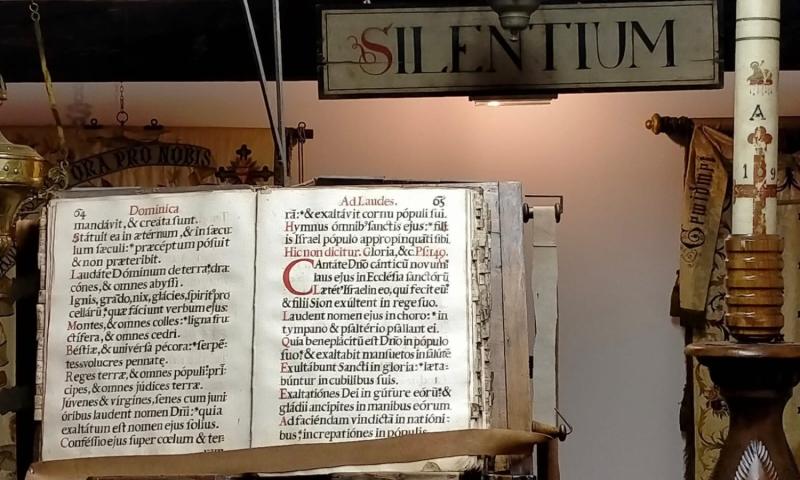 SILENTIUM
ORA PRO NOBIS
A
1 9
64 Dominica
mandávit, & creáta sunt.
Státuit ea in ætérnum, & in sæcu
lum sæculi: * præcéptum pósuit
& non præteríbit.
Laudáte Dóminum de terra, * dra
cónes, & omnes abyssi.
Ignis, grado, nix, glácies, spirit⁹ pro
cellarū: * quæ fáciunt verbum ejus:
Montes, & omnes colles: * ligna fru
ctífera, & omnes cedri.
Béstiæ, & univérsa pécora: * serpē=
tes volucres pennatę.
Reges terræ, & omnes pópuli: * pri
cipes, & omnes júdices terræ.
Júvenes & vírgines, senes cum juni
óribus laudent nomen Dñi: * quia
exaltátum est nomen ejus solíus.
Conféssio ejus super cœlum, & ter
ram
Ad Laudes. 65
rā: * & exaltávit cornu pópuli sui.
Hymnus ómnib⁹ sanctis ejus: * fili
is Israel pópulo appropinquāti sibi.
Hic non dicitur. Gloria, &c. Ps. 149.
CAntáte Dño cánticū novum:
laus ejus in Ecclésia sanctórū
Lætét' Israel in eo, qui fecit eū:
& filii Sion exúltent in rege suo.
Laudent nomen ejus in choro: * in
tympano & psaltério psállant ei.
Quia beneplácitū est Dño in pópulo
suo: * & exaltabit mansuetos in salúte
Exultábunt Sancti in gloria: * læta=
búntur in cubilibus suis.
Exaltatiónes Dei in gúture eórū: * &
gládii ancipites in manibus eórum.
Ad faciéndam vindíctā in natióni=
bus: * increpatiónes in pópulis.